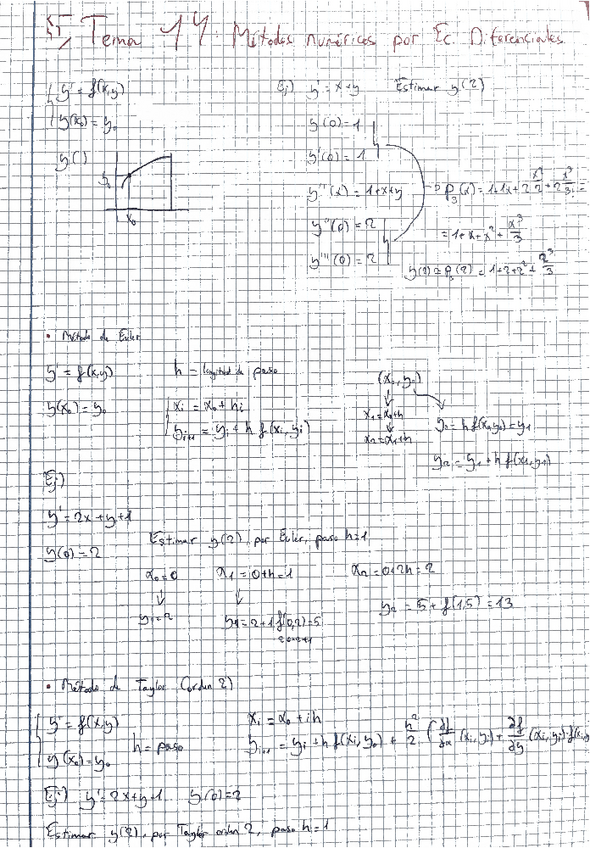 Tema 14 Métodos numéricos por Ec. Diferenciales
y' = f(x,y)
y(x₀) = y₀
y()
y₀
x₀
Ej) y' = x+y Estimar y(2)
y(0) = 1
y'(0) = 1
y''(x) = 1+x+y
y''(0) = 2
y'''(0) = 2
→ P₃(x) = 1+1x+2 x²/2 + 2 x³/3! =
= 1+x+x²+x³/3
y(2) ≈ P₃(2) = 1+2+2²+2³/3
• Método de Euler
y' = f(x,y)
y(x₀) = y₀
h = longitud de paso
xᵢ = x₀ + hi
yᵢ₊₁ = yᵢ + h f(xᵢ, yᵢ)
(x₀, y₀)
x₁ = x₀+h
x₂ = x₁+h
y₀ = h f(x₀,y₀) = y₁
y₂ = y₁ + h f(x₁,y₁)
Ej)
y' = 2x+y+1
y(0) = 2
Estimar y(2) por Euler, paso h=1
x₀ = 0 x₁ = 0+h = 1 x₂ = 0+2h = 2
y₀ = 2 y₁ = 2+1 f(0,2) = 5 y₂ = 5 + f(1,5) = 13
• Método de Taylor (orden 2)
y' = f(x,y)
y(x₀) = y₀
h = paso
xᵢ = x₀ + ih
yᵢ₊₁ = yᵢ + h f(xᵢ, y₀) + h²/2 (∂f/∂x (xᵢ, yᵢ) + ∂f/∂y (xᵢ, yᵢ) · f(xᵢ, y
Ej) y' = 2x+y+1 y(0) = 2
Estimar y(2), por Taylor orden 2, paso h=1